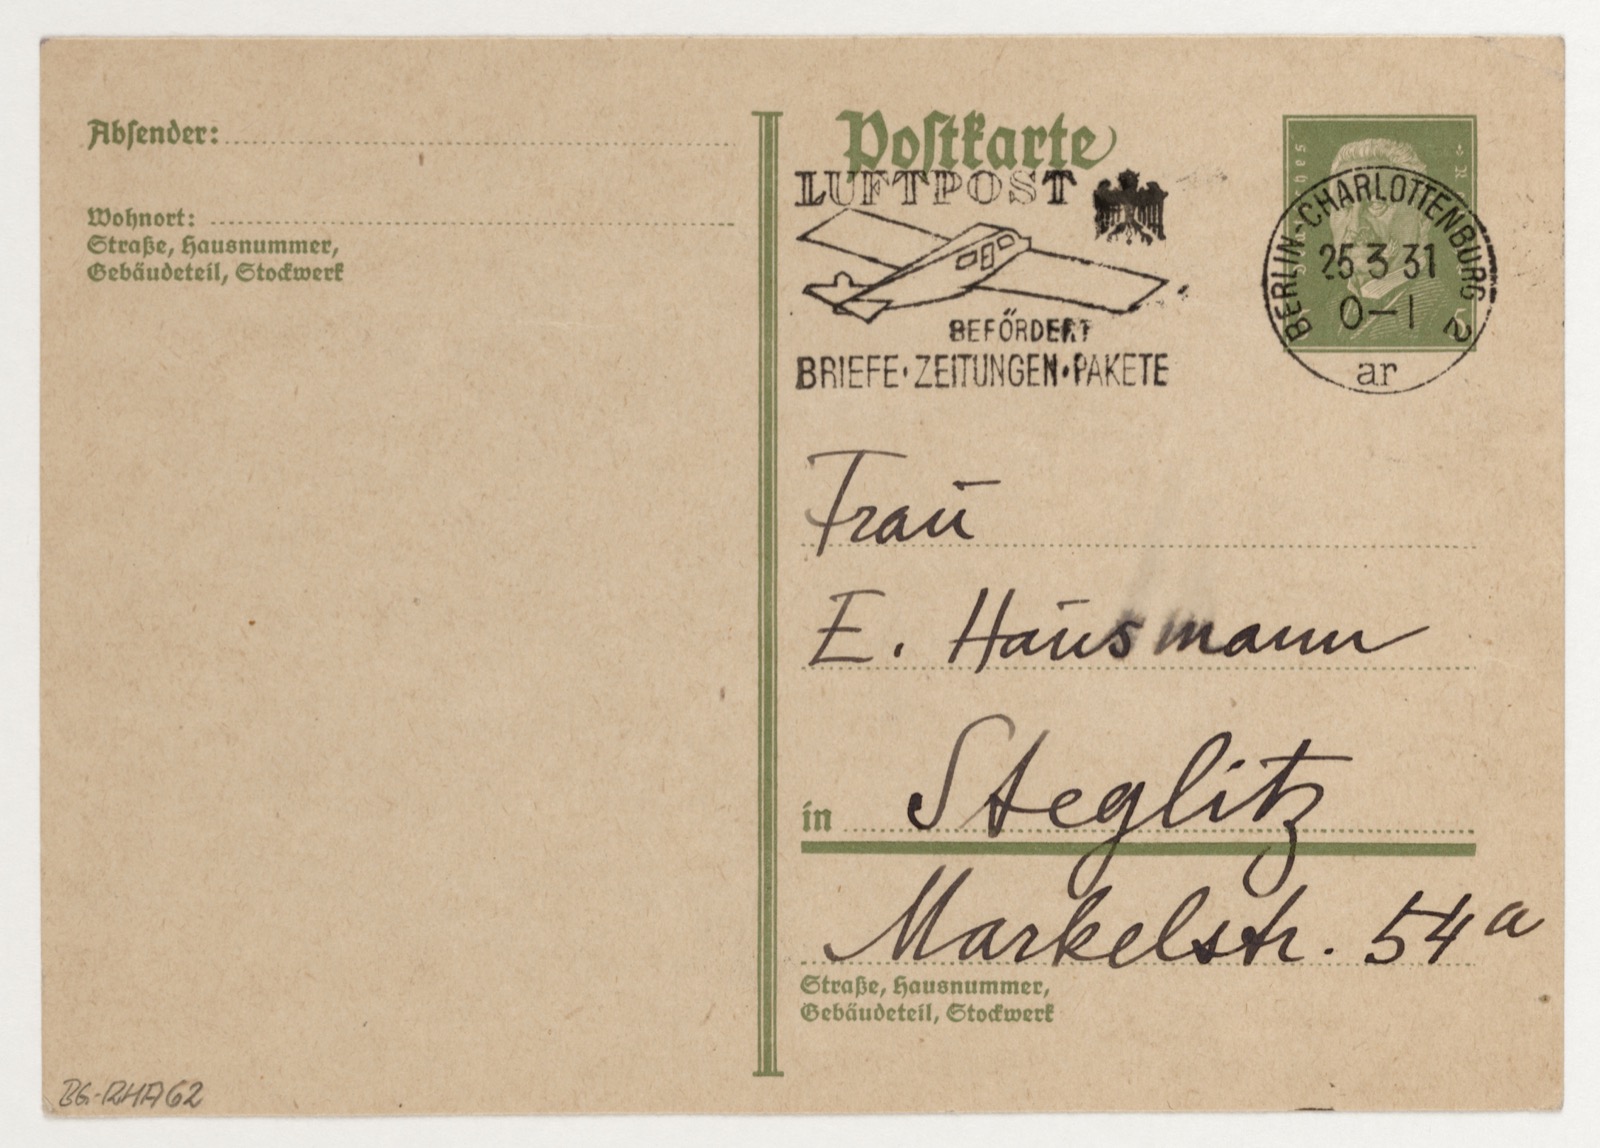 Absender:
Wohnort:
Straße, Hausnummer,
Gebäudeteil, Stockwerk
Postkarte
LUFTPOST
BEFÖRDERT
BRIEFE·ZEITUNGEN·PAKETE
BERLIN-CHARLOTTENBURG 2
25 3 31
0–1
ar
Frau
E. Hausmann
in Steglitz
Markelstr. 54a
Straße, Hausnummer,
Gebäudeteil, Stockwerk
BG-RHA62